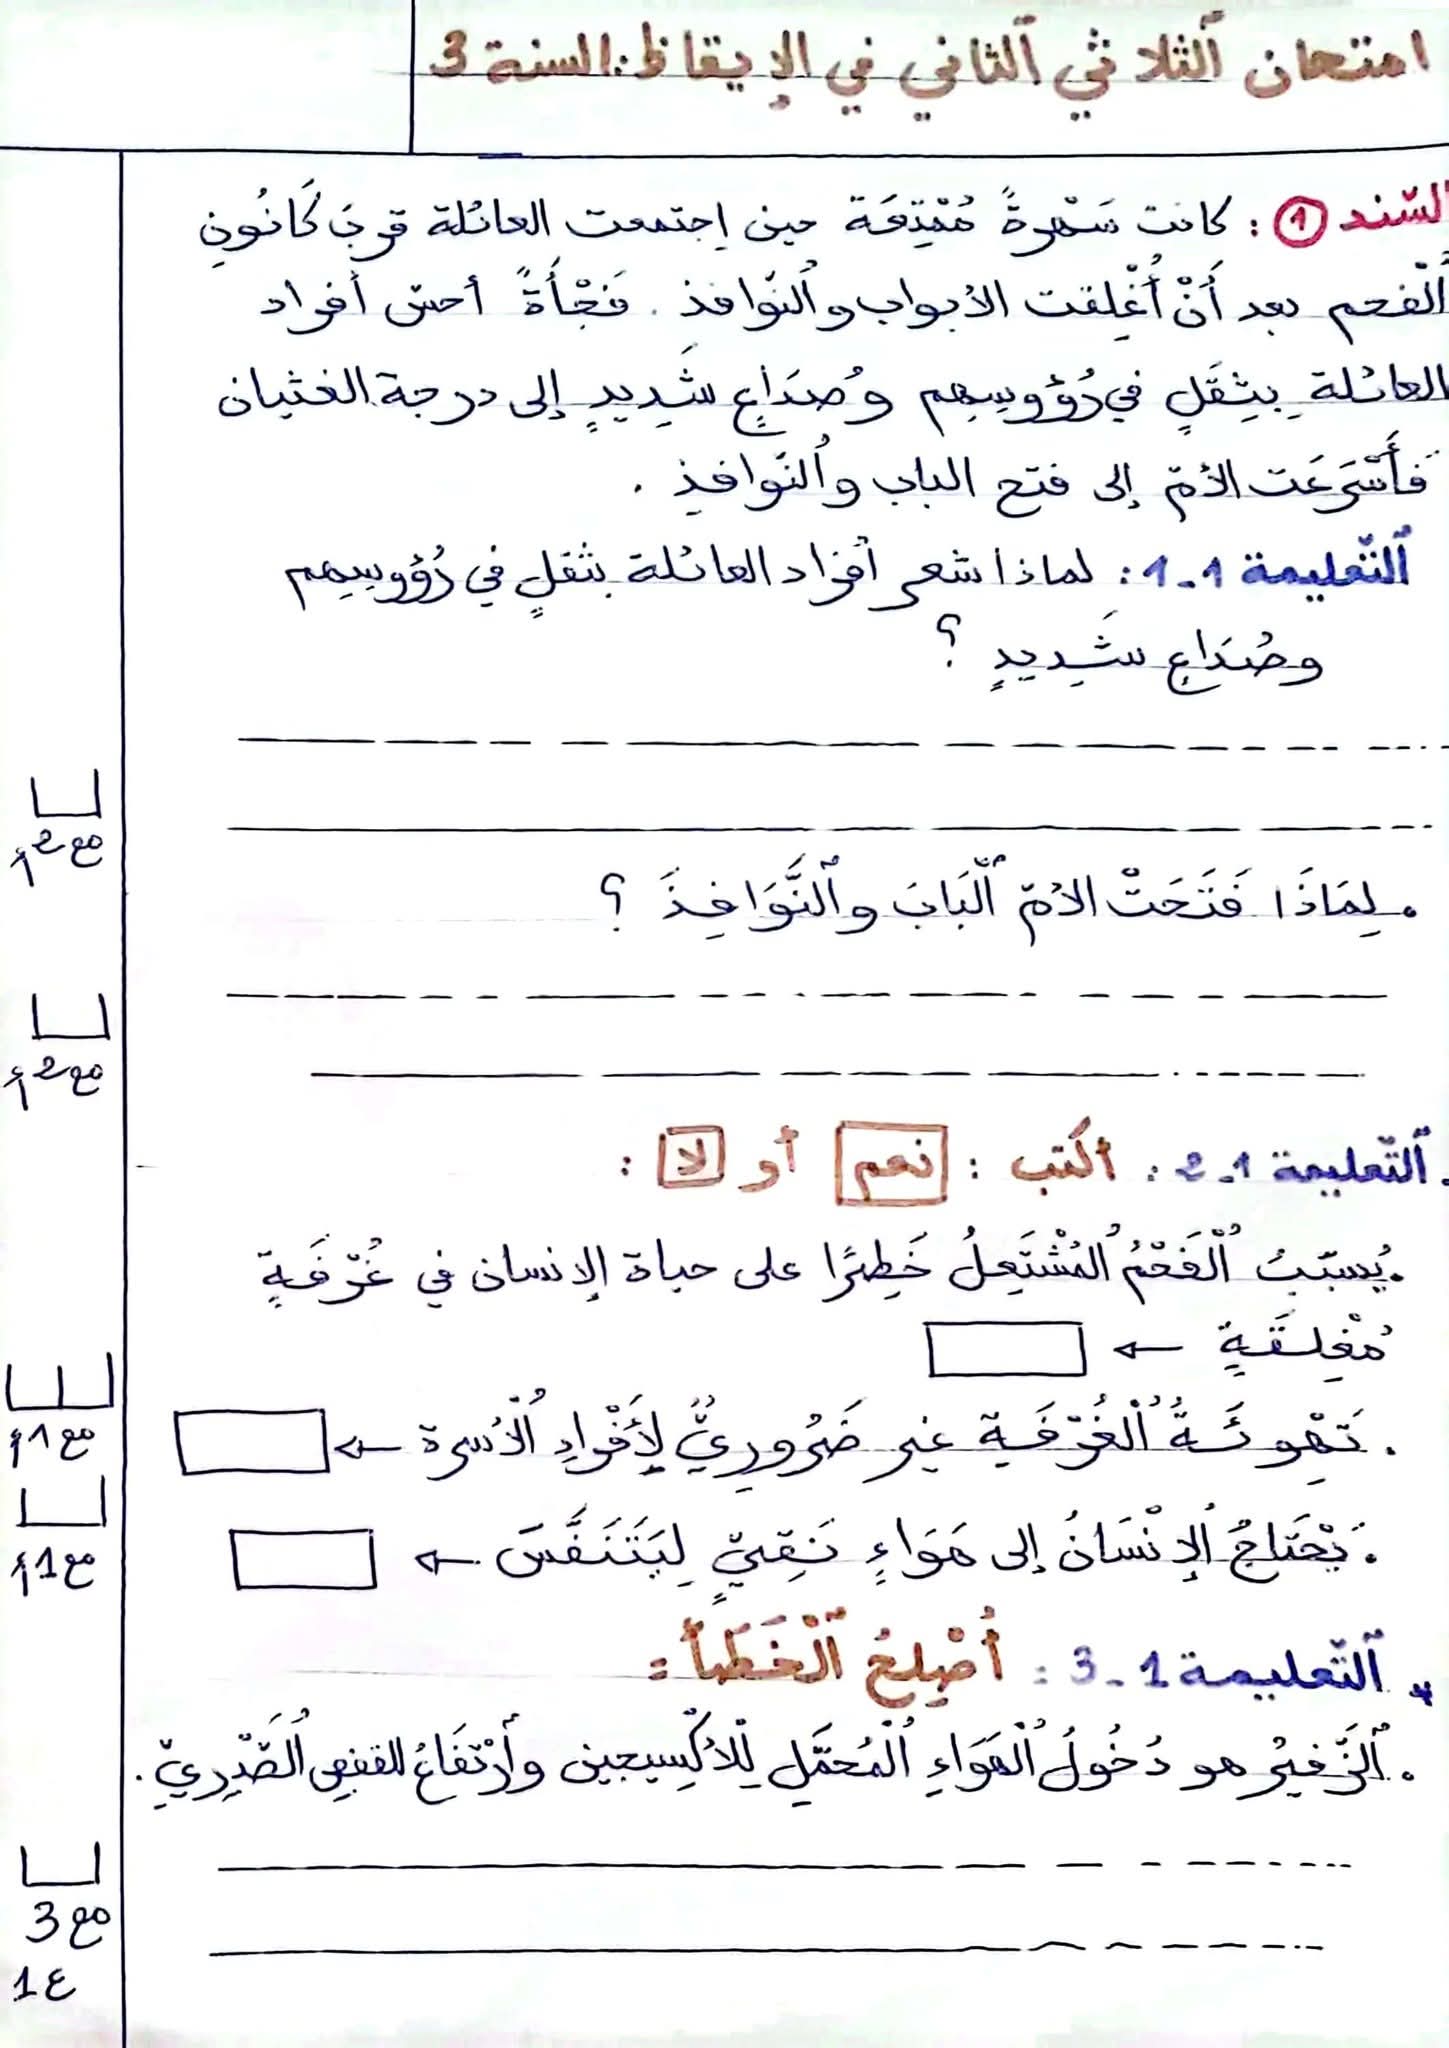 امتحان الثلاثي الثاني في الإيقاظ: السنة 3
السّند 1 : كانت سَهْرةً مُمْتِعَة حين اِجتمعت العائلة قربَ كَانُونِ
ٱلْفحم بعد أَنْ أُغْلِقت الأبواب وٱلنّوافذ. فَجْأَةً أحسّ أفراد
العائلة بِثِقَلٍ في رُؤُوسِهِم وصُدَاعٍ شَدِيدٍ إلى درجة الغثيان
فَأَسْرَعَت الأمّ إلى فتح الباب وٱلنّوافذِ.
ٱلتّعليمة 1-1: لماذا شعر أفراد العائلة بثقلٍ في رُؤُوسِهِم
وصُدَاعٍ شَدِيدٍ ؟
مع2 أ
• لِمَاذَا فَتَحَتْ الأمّ ٱلْبَابَ وٱلنَّوَافِذَ ؟
مع2 أ
ٱلتّعليمة 1-2: اكتب : نعم أو لا :
• يُسبّبُ ٱلْفَحْمُ ٱلمُشْتَعِلُ خَطِرًا على حياة الإنسان في غُرْفَةٍ
مُغْلَقَةٍ ←
مع1 أ
• تَهْوِئَةُ ٱلْغُرْفَةِ غير ضَرُورِيٌّ لِأَفْرَادِ ٱلْأسرة ←
• يَحْتَاجُ ٱلإنْسَانُ إلى هَوَاءٍ نَقِيٍّ لِيَتَنَفَّسَ ←
مع1 أ
* ٱلتّعليمة 1-3 : أُصْلِحُ ٱلْخَطَأَ :
• ٱلزّفيرُ هو دُخُولُ ٱلْهَوَاءِ ٱلْمُحمَّلِ بِٱلأكْسِيجين وٱرْتفَاعُ القفصِ ٱلصَّدْرِيّ.
مع3
ع1